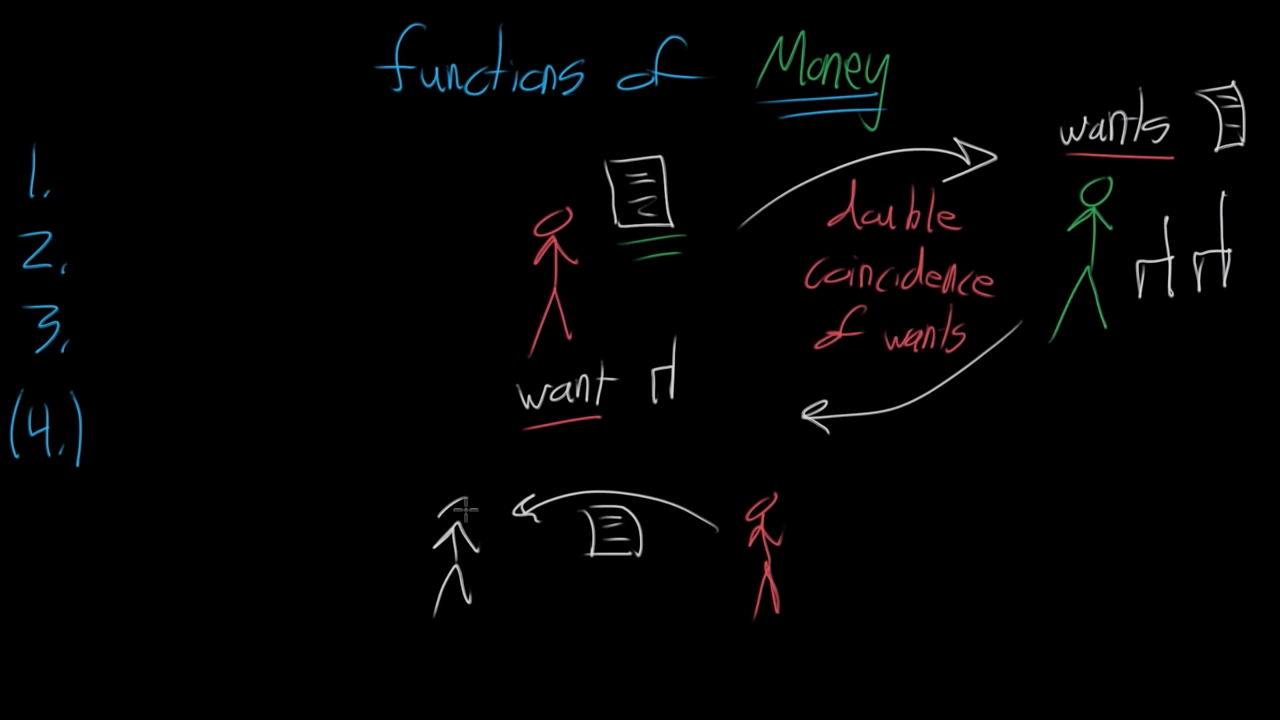 functions of Money
1.
2.
3.
(4.)
wants
double
coincidence
of wants
want